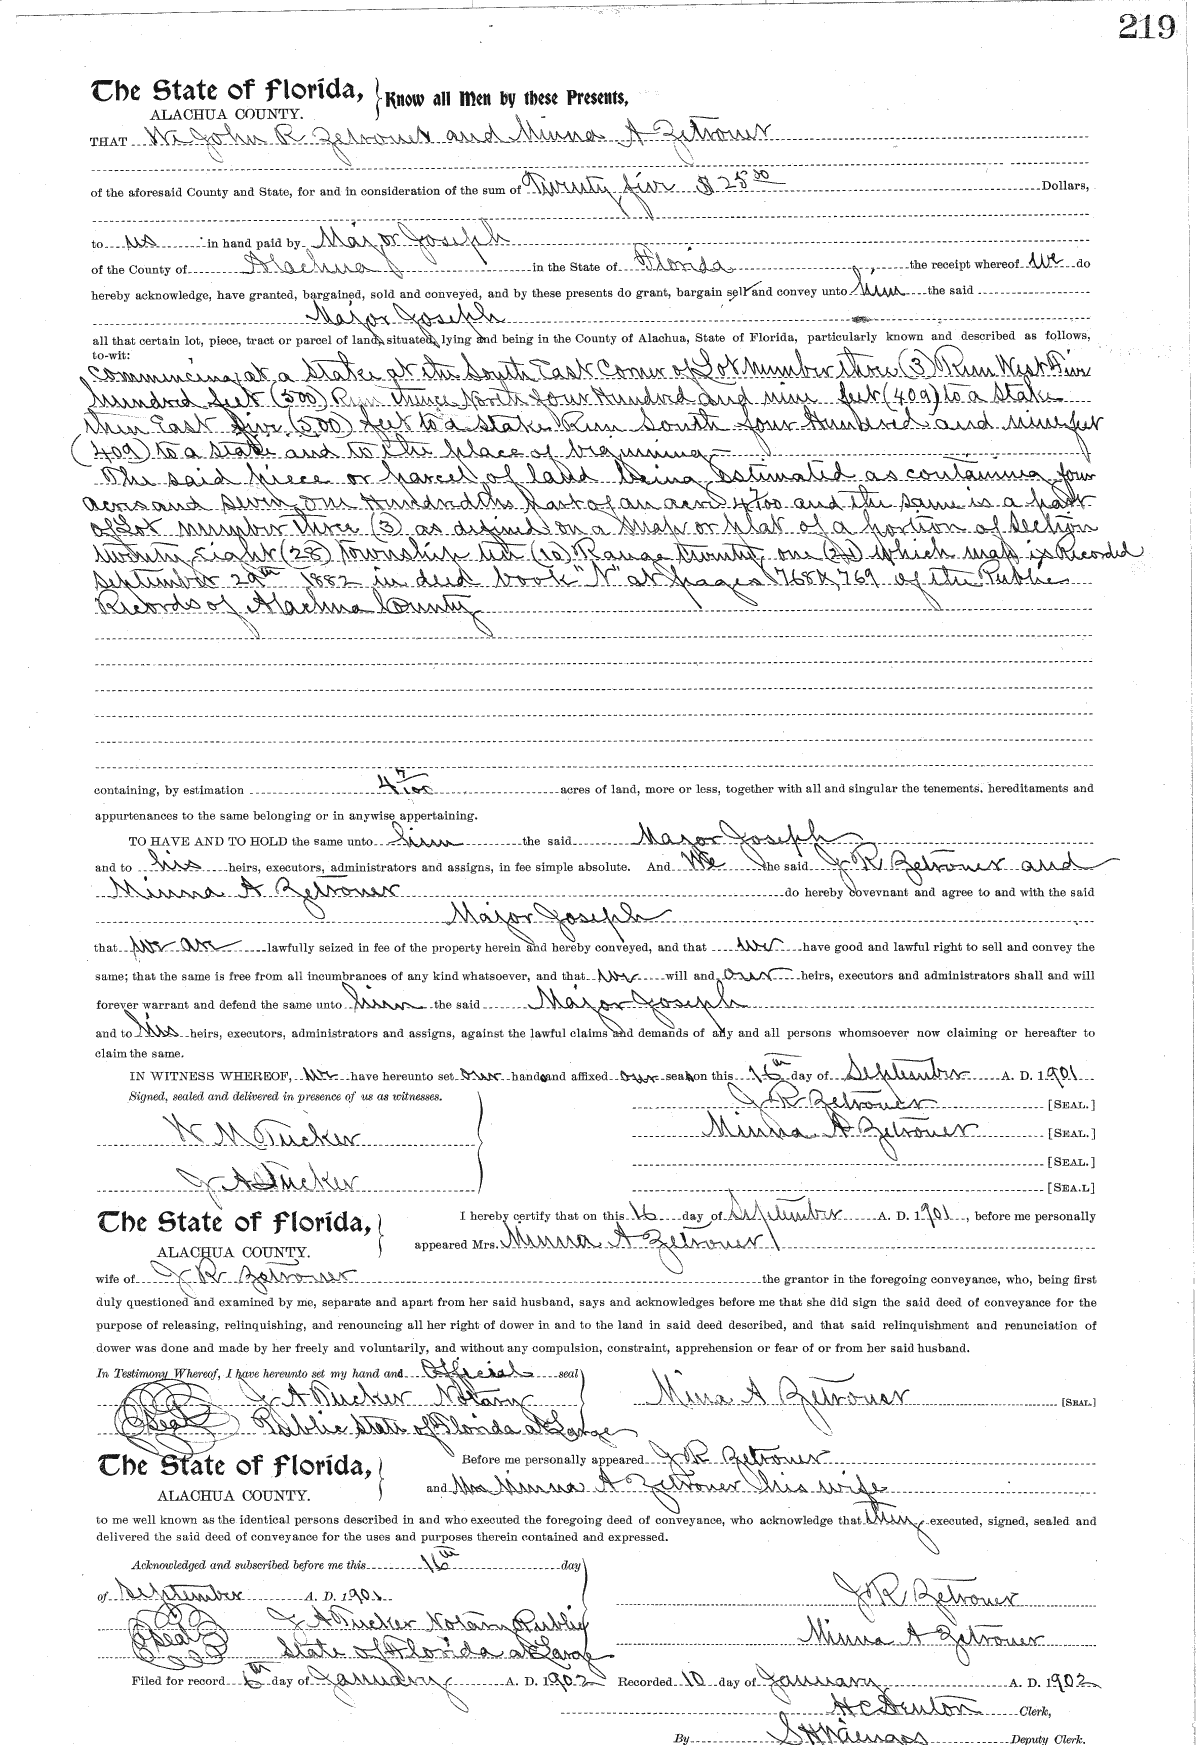 219
The State of Florida, Know all Men by these Presents,
ALACHUA COUNTY.
THAT We John R Zetrouer and Minna A Zetrouer
of the aforesaid County and State, for and in consideration of the sum of Twenty five $25.00 Dollars,
to us in hand paid by Major Joseph
of the County of Alachua in the State of Florida the receipt whereof we do
hereby acknowledge, have granted, bargained, sold and conveyed, and by these presents do grant, bargain sell and convey unto him the said
Major Joseph
all that certain lot, piece, tract or parcel of land, situated, lying and being in the County of Alachua, State of Florida, particularly known and described as follows,
to-wit:
Commencing at a stake at the South East Corner of Lot number three (3) Run West Five
hundred feet (500) Run thence North four Hundred and nine feet (409) to a Stake
then East five (500) feet to a stake Run South four Hundred and nine feet
(409) to a stake and to the place of beginning
The said piece or parcel of land being estimated as containing four
acres and seven one Hundredths part of an acre 4 7/100 and the same is a part
of Lot number three (3) as defined on a map or plat of a portion of Section
twenty eight (28) Township ten (10) Range twenty one (21) which map is Recorded
September 29th 1882 in deed book "N" at pages 768 & 769 of the Public
Records of Alachua County
containing, by estimation 4 7/100 acres of land, more or less, together with all and singular the tenements, hereditaments and
appurtenances to the same belonging or in anywise appertaining.
TO HAVE AND TO HOLD the same unto him the said Major Joseph
and to his heirs, executors, administrators and assigns, in fee simple absolute. And We the said J R Zetrouer and
Minna A Zetrouer do hereby covevnant and agree to and with the said
Major Joseph
that we are lawfully seized in fee of the property herein and hereby conveyed, and that we have good and lawful right to sell and convey the
same; that the same is free from all incumbrances of any kind whatsoever, and that we will and our heirs, executors and administrators shall and will
forever warrant and defend the same unto him the said Major Joseph
and to his heirs, executors, administrators and assigns, against the lawful claims and demands of any and all persons whomsoever now claiming or hereafter to
claim the same.
IN WITNESS WHEREOF, we have hereunto set our hands and affixed our seals on this 16th day of September A. D. 1901
Signed, sealed and delivered in presence of us as witnesses. J R Zetrouer [SEAL.]
W M Tucker Minna A Zetrouer [SEAL.]
[SEAL.]
J A Tucker [SEA.L]
The State of Florida, I hereby certify that on this 16 day of September A. D. 1901, before me personally
ALACHUA COUNTY. appeared Mrs. Minna A Zetrouer
wife of J R Zetrouer the grantor in the foregoing conveyance, who, being first
duly questioned and examined by me, separate and apart from her said husband, says and acknowledges before me that she did sign the said deed of conveyance for the
purpose of releasing, relinquishing, and renouncing all her right of dower in and to the land in said deed described, and that said relinquishment and renunciation of
dower was done and made by her freely and voluntarily, and without any compulsion, constraint, apprehension or fear of or from her said husband.
In Testimony Whereof, I have hereunto set my hand and Official seal
J A Tucker Notary Minna A Zetrouer [SEAL.]
Seal Public State of Florida at Large
The State of Florida, Before me personally appeared J R Zetrouer
ALACHUA COUNTY. and Mrs Minna A Zetrouer his wife
to me well known as the identical persons described in and who executed the foregoing deed of conveyance, who acknowledge that they executed, signed, sealed and
delivered the said deed of conveyance for the uses and purposes therein contained and expressed.
Acknowledged and subscribed before me this 16th day
of September A. D. 1901 J R Zetrouer
Seal J A Tucker Notary Public
State of Florida at Large Minna A Zetrouer
Filed for record 6th day of January A. D. 1902 Recorded 10 day of January A. D. 1902
H C Denton Clerk,
By S H Wienges Deputy Clerk.